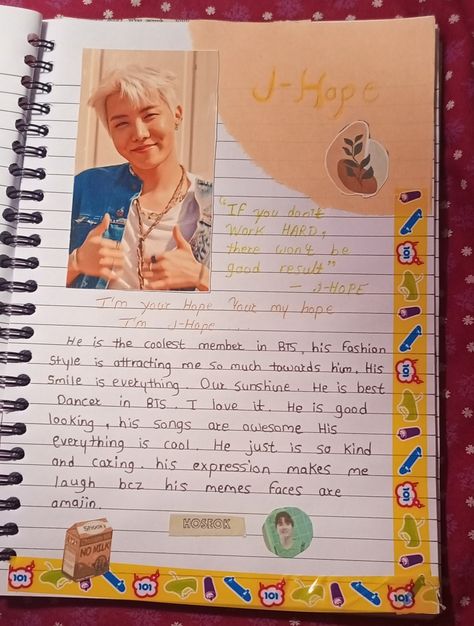 J-Hope
"If you don't
WORK HARD,
there won't be
good result"
— J-HOPE
I'm your Hope Your my hope
I'm J-Hope ....
He is the coolest member in BTS, his fashion
style is attracting me so much towards him. His
smile is everything. Our sunshine. He is best
Dancer in BTS. I love it. He is good
looking, his songs are awesome His
everything is cool. He just is so kind
and caring. his expression makes me
laugh bcz his memes faces are
amajin.
HOSEOK
NO MILK
101
101
101
101
101
101
101
101